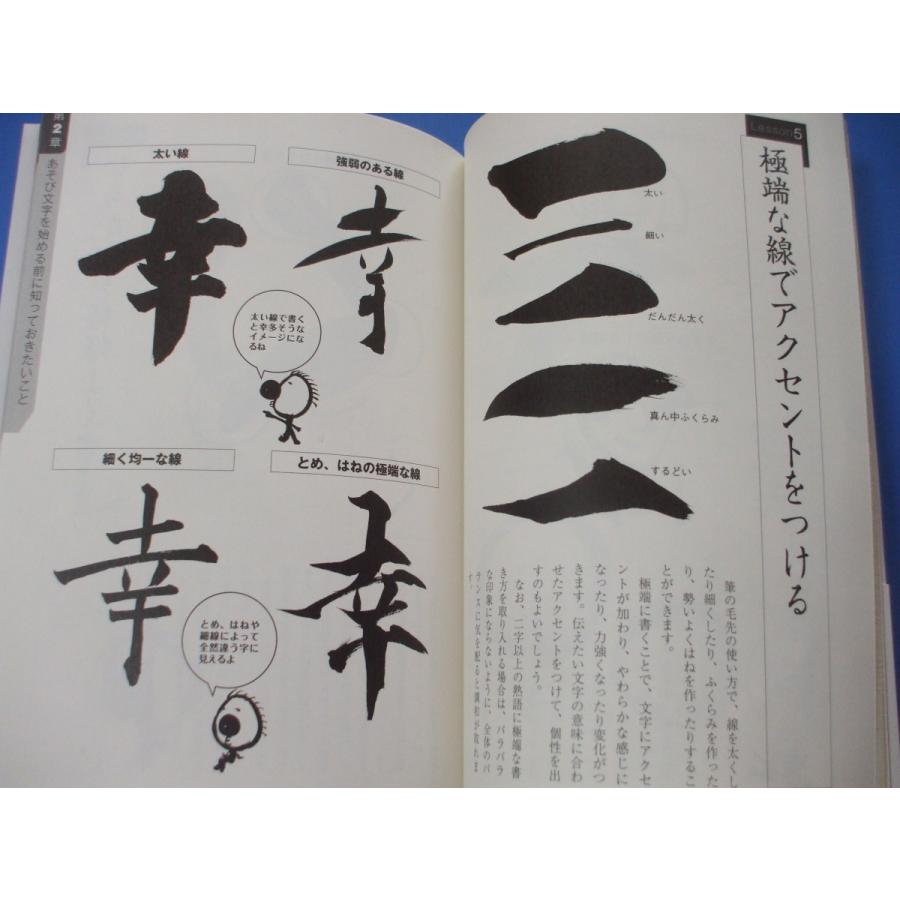 Lesson5
極端な線でアクセントをつける
太い
細い
だんだん太く
真ん中ふくらみ
するどい
筆の毛先の使い方で、線を太くし
たり細くしたり、ふくらみを作った
り、勢いよくはねを作ったりするこ
とができます。
極端に書くことで、文字にアクセ
ントが加わり、やわらかな感じに
なったり、力強くなったり変化がつ
きます。伝えたい文字の意味に合わ
せたアクセントをつけて、個性を出
すのもよいでしょう。
なお、二字以上の熟語に極端な書
き方を取り入れる場合は、バラバラ
な印象にならないように、全体のバ
ランスに気を配ると調和が取れま
す。
第2章
あそび文字を始める前に知っておきたいこと
強弱のある線
幸
太い線
幸
太い線で書く
と幸多そうな
イメージにな
るね
とめ、はねの極端な線
幸
細く均一な線
幸
とめ、はねや
細線によって
全然違う字に
見えるよ